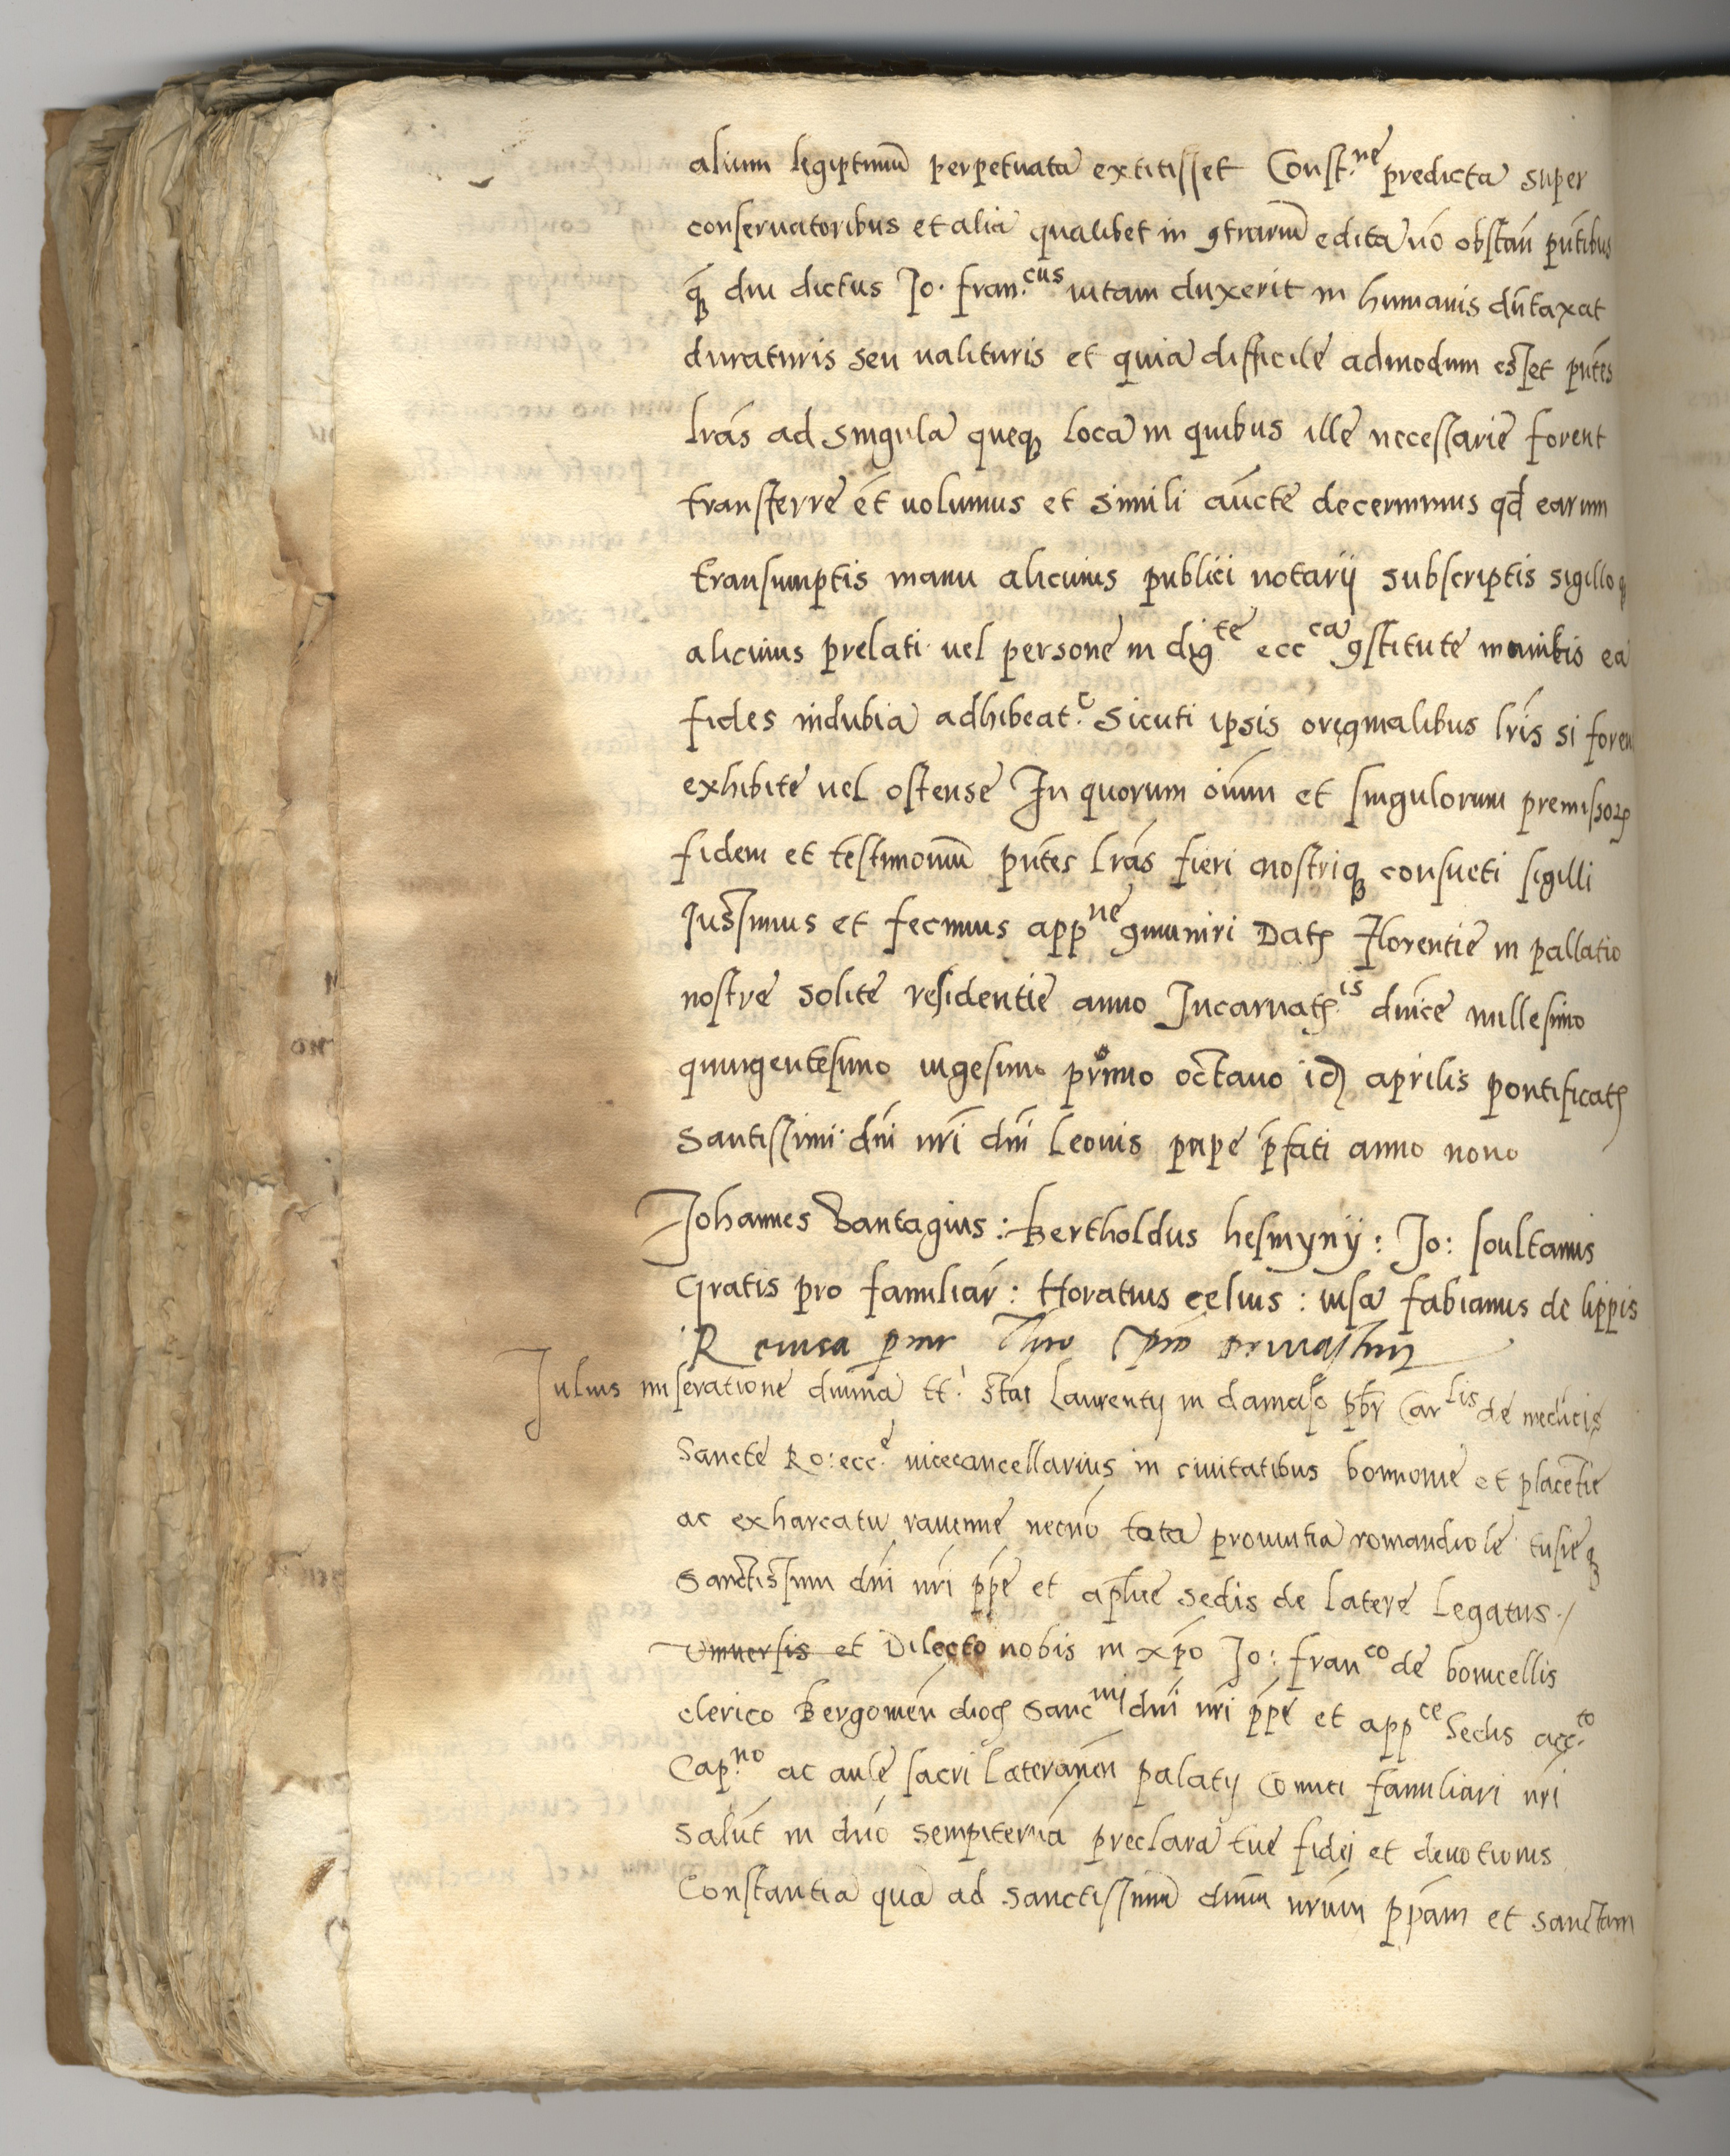 alium legiptimū perpetuata extitisset Const.ne predicta super
conseruatoribus et alia qualibet in ꝯtrariū edita nō obstan̄ pn̄tibus
q̄ꝫ diu dictus Jo. fran.cus uitam duxerit in humanis dūtaxat
duraturis seu ualituris et quia difficile admodum esset pn̄tes
lr̄as ad singula queqꝫ loca in quibus ille necessarie forent
transferre et̄ uolumus et simili auc̄te decernimus qd̄ earum
transumptis manu alicuius publici notarij subscriptis sigillo
alicuius prelati uel persone in dig.te ecc.ca ꝯstitute ea
fides indubia adhibeat.r sicuti ipsis originalibus lr̄is si foren
exhibite uel ostense In quorum oīum et singulorum premissoꝝ
fidem et testimoniū pn̄tes lr̄as fieri nostriqꝫ consueti sigilli
Jussimus et fecimus app.ne ꝯmuniri Datꝭ Florentie in pallatio
nostre solite residentie anno Incarnatꝭ.is dn̄ice millesimo
quingentesimo uigesimo primo octauo id aprilis pontificatꝭ
Santissimi dn̄i nr̄i dn̄i Leonis pape p̄fati anno nono
Johannes Santagius : Bertholdus hesmynÿ : Jo: soultanus
Gratis pro familiar̄ : Horatius celius : uisa fabianus de lippis
R
Julius miseratione diuina tt. st̄i Laurentij in damaso pb̄r Car.lis de medicis
Sancte Ro: ecc.e uicecancellarius in ciuitatibus bononie et placētie
ac exharcatu rauenne necnō tota prouintia romandiole tusieqꝫ
Sanctissimi dn̄i nr̄i pp̄e et aplīce sedis de latere Legatus ./
Vniuersis et Dilecto nobis in xp̄o Jo: fran.co de bonicellis
clerico Bergomen̄ diocꝭ Sanc.mi dn̄i nr̄i pp̄e et app.ce Sedis acc.to
Cap.no ac aule sacri Lateranen̄ palatij Comiti familiari nr̄i
Salut̄ in dn̄o sempiternā preclara tue fidei et deuotionis
Constantia qua ad sanctissimū dn̄um nr̄um pp̄am et sanctam